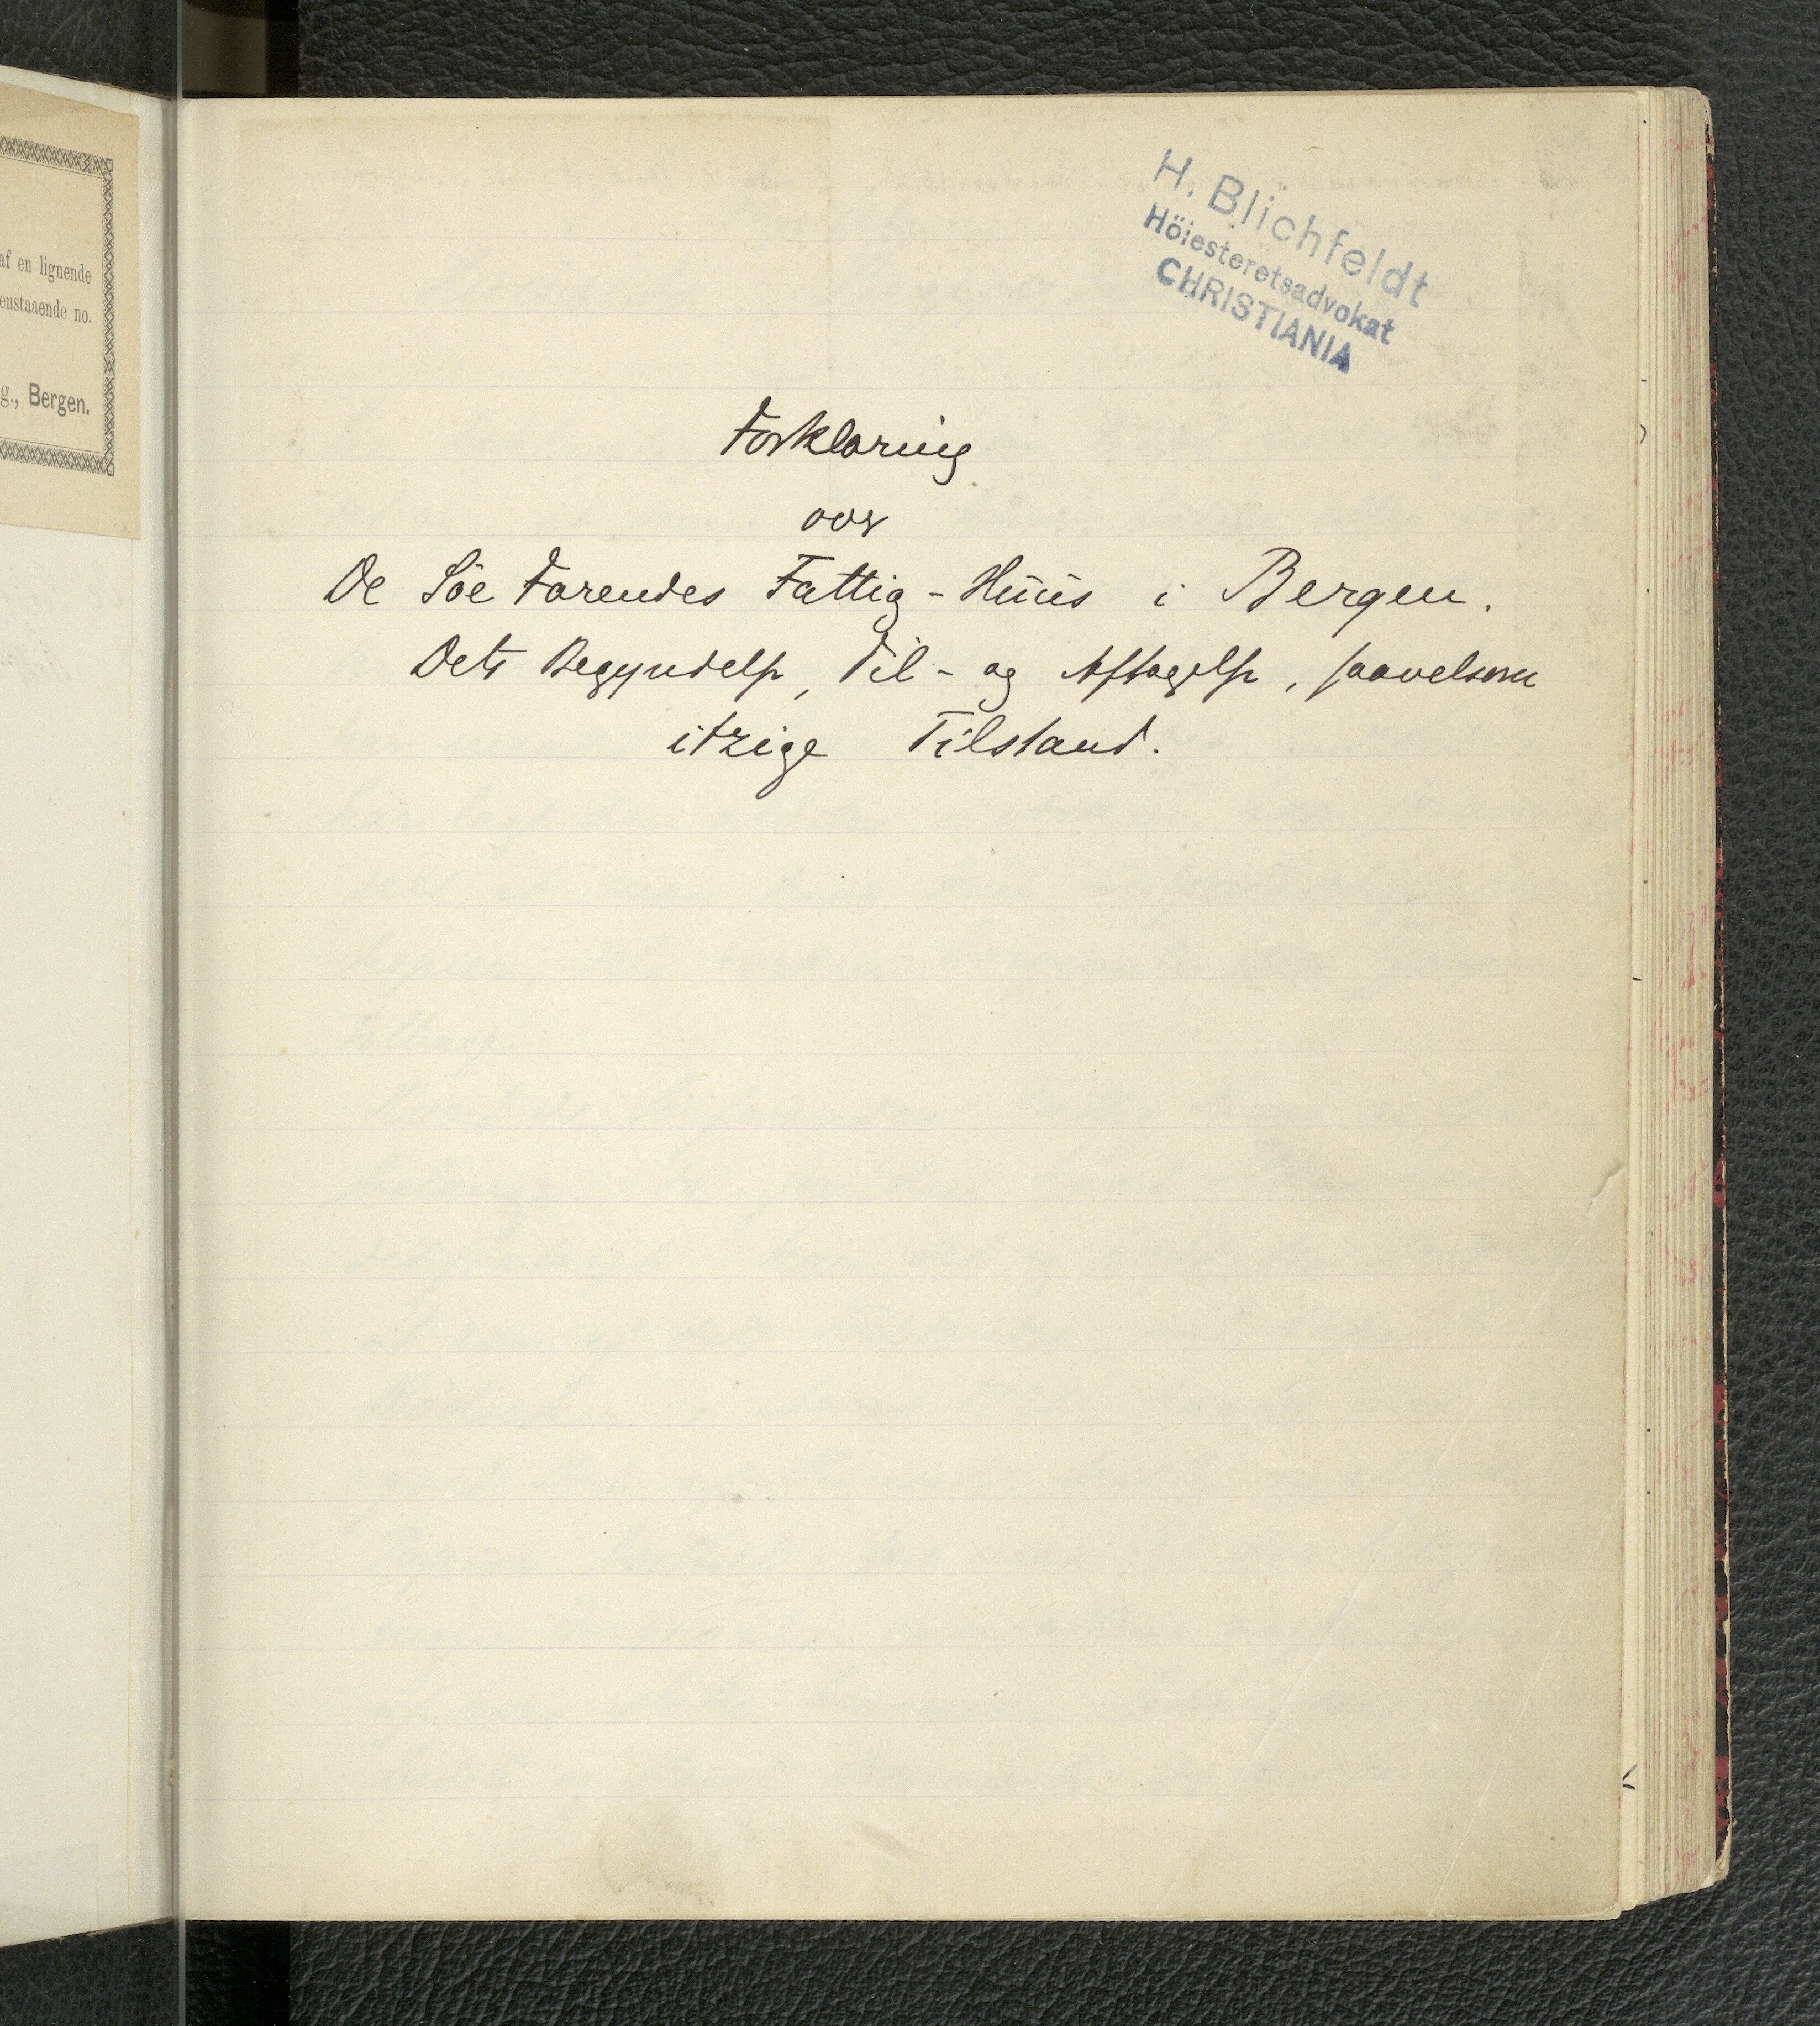 af en lignende
enstaaende no.
g., Bergen.
H. Blichfeldt
Höiesteretsadvokat
CHRISTIANIA
Forklaring
over
De Söe Farendes Fattig-Huus i Bergen.
Dets Begyndelse, Til- og Aftagelse, saavelsom
itzige Tilstand.